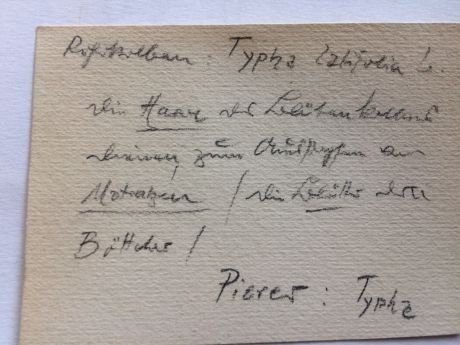 Rohrkolben: Typha latifolia L.
die Haare des Blütenkolbens
dienen zum Ausstopfen von
Matratzen / die Blätter den
Böttcher /
Pierer: Typha